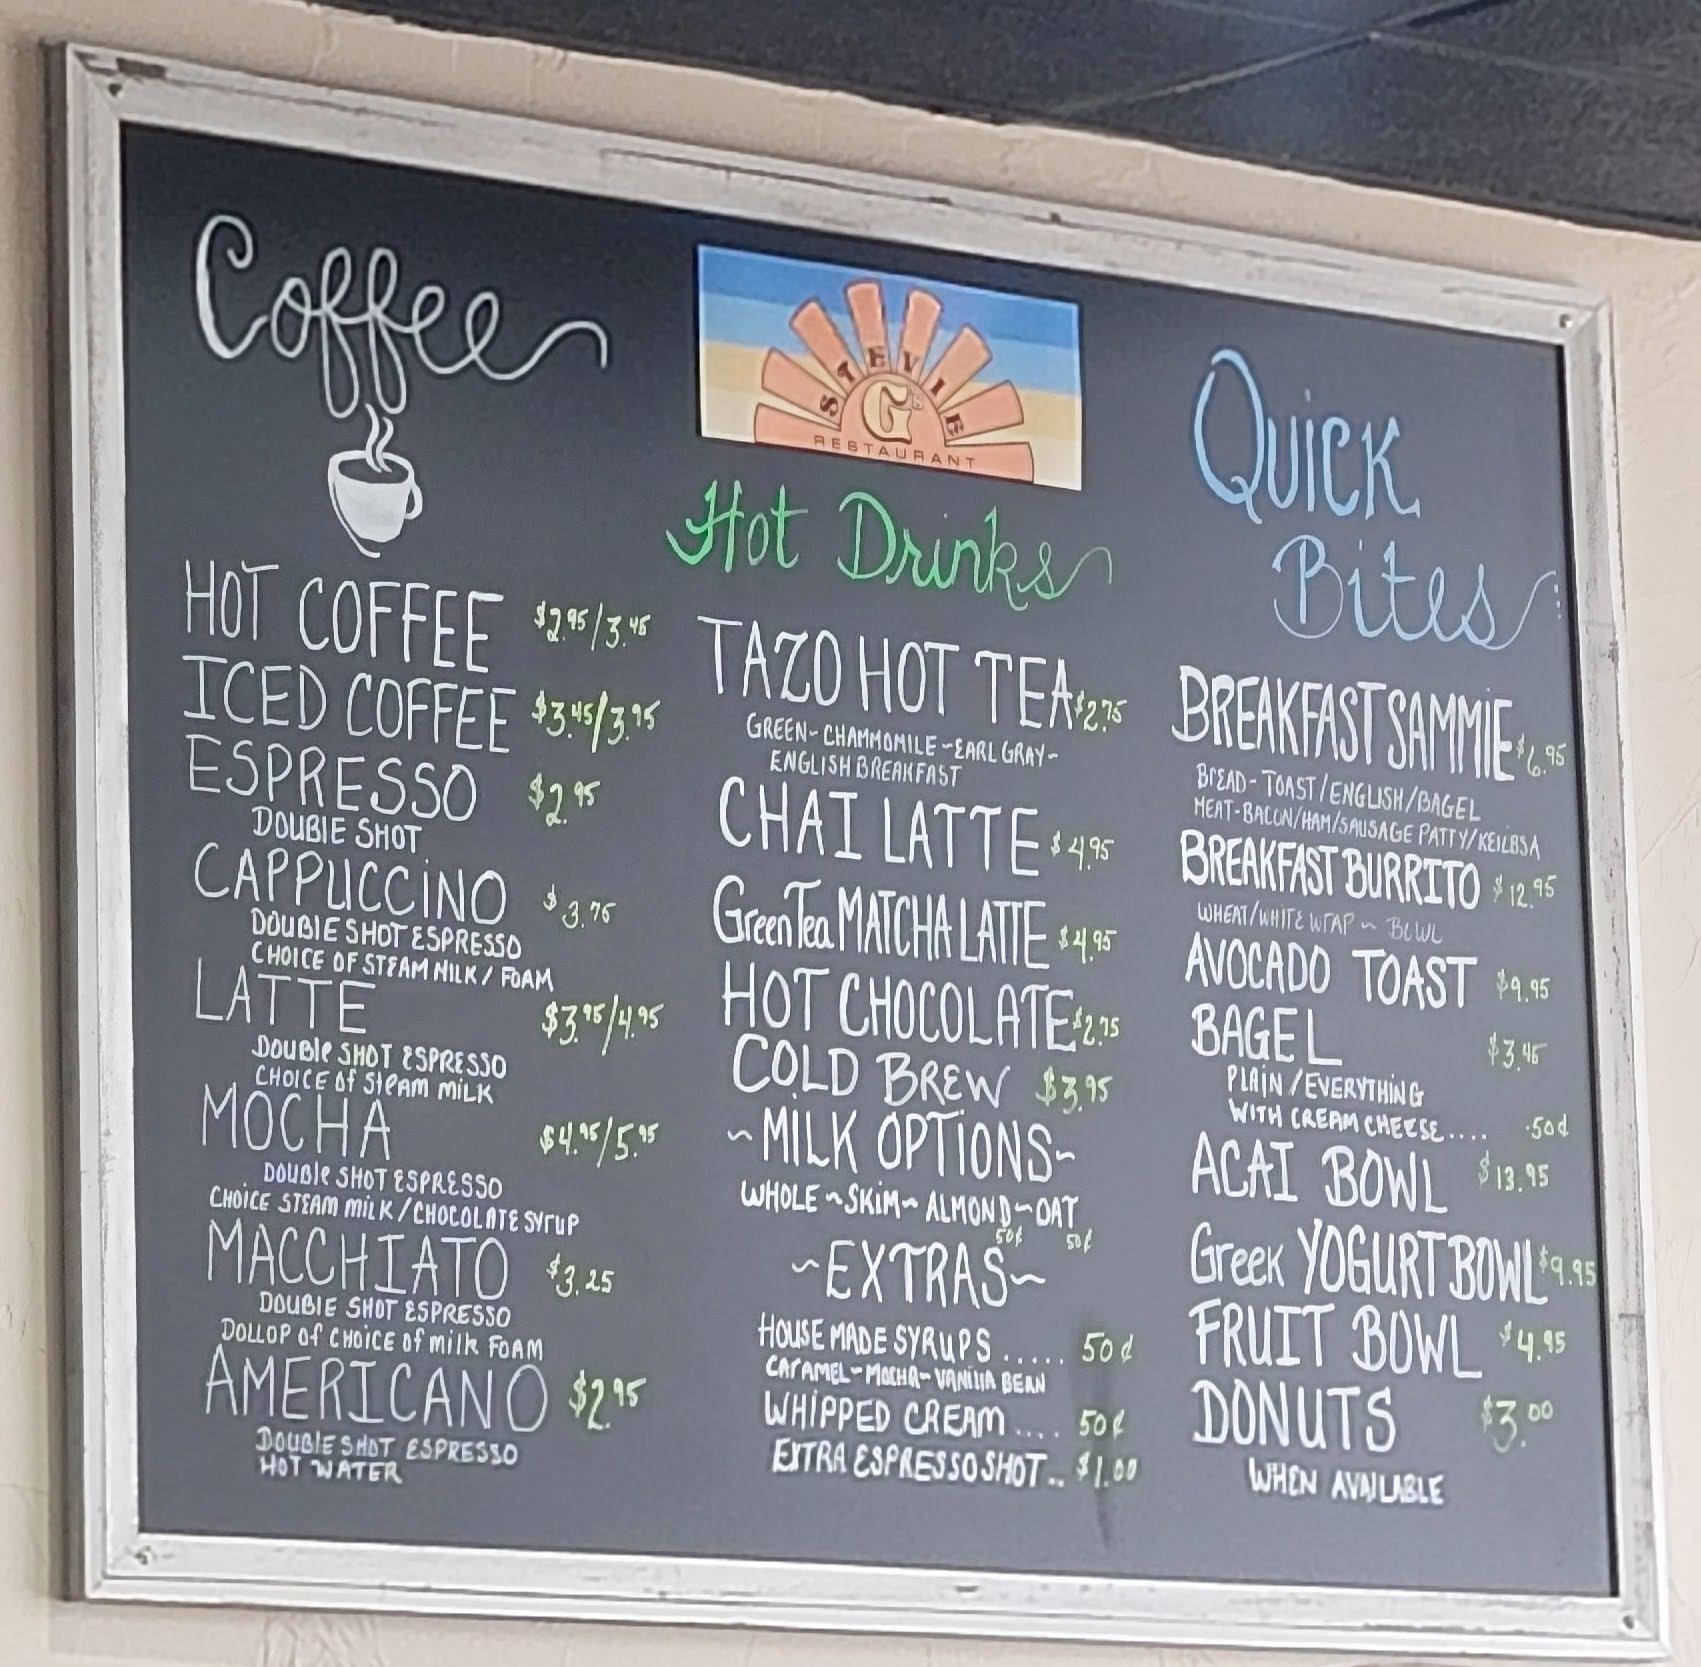 Coffee
HOT COFFEE $2.95/3.45
ICED COFFEE $3.45/3.95
ESPRESSO $2.95
DOUBLE SHOT
CAPPUCCINO $3.75
DOUBLE SHOT ESPRESSO
CHOICE OF STEAM MILK / FOAM
LATTE $3.95/4.95
DOUBLE SHOT ESPRESSO
CHOICE OF STEAM MILK
MOCHA $4.95/5.95
DOUBLE SHOT ESPRESSO
CHOICE STEAM MILK / CHOCOLATE SYRUP
MACCHIATO $3.25
DOUBLE SHOT ESPRESSO
DOLLOP OF CHOICE OF MILK FOAM
AMERICANO $2.95
DOUBLE SHOT ESPRESSO
HOT WATER
STEVIE
G's
RESTAURANT
Hot Drinks
TAZO HOT TEA $2.75
GREEN~CHAMMOMILE~EARL GRAY~
ENGLISH BREAKFAST
CHAI LATTE $4.95
Green Tea MATCHA LATTE $4.95
HOT CHOCOLATE $2.75
COLD BREW $3.95
~MILK OPTIONS~
WHOLE~SKIM~ALMOND~OAT
50¢ 50¢
~EXTRAS~
HOUSE MADE SYRUPS ..... 50¢
CARAMEL~MOCHA~VANILLA BEAN
WHIPPED CREAM .... 50¢
EXTRA ESPRESSO SHOT.. $1.00
QUICK
Bites
BREAKFAST SAMMIE $6.95
BREAD-TOAST/ENGLISH/BAGEL
MEAT-BACON/HAM/SAUSAGE PATTY/KEILBSA
BREAKFAST BURRITO $12.95
WHEAT/WHITE WRAP ~ BOWL
AVOCADO TOAST $9.95
BAGEL $3.45
PLAIN/EVERYTHING
WITH CREAM CHEESE.... .50¢
ACAI BOWL $13.95
Greek YOGURT BOWL $9.95
FRUIT BOWL $4.95
DONUTS $3.00
WHEN AVAILABLE